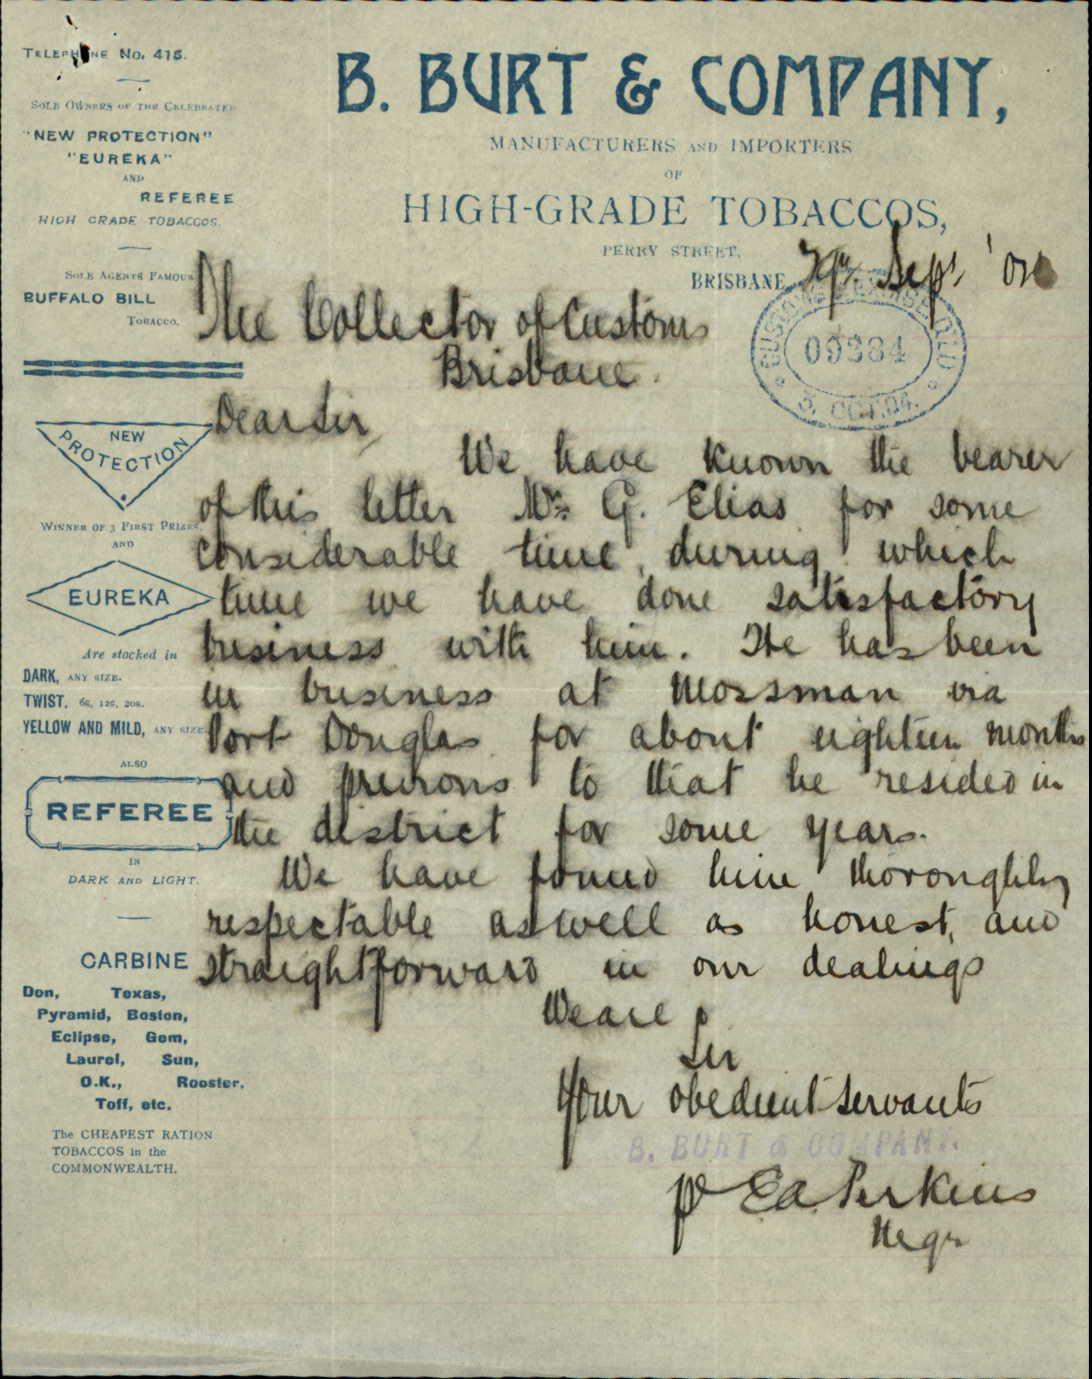 TELEPHONE No. 415.
SOLE OWNERS OF THE CELEBRATED
"NEW PROTECTION"
"EUREKA"
AND
REFEREE
HIGH GRADE TOBACCOS.
SOLE AGENTS FAMOUS
BUFFALO BILL
TOBACCO.
NEW
PROTECTION
WINNER OF 3 FIRST PRIZES,
AND
EUREKA
Are stocked in
DARK, ANY SIZE.
TWIST, 6s, 12s, 20s.
YELLOW AND MILD, ANY SIZE.
ALSO
REFEREE
IN
DARK AND LIGHT.
CARBINE
Don, Texas,
Pyramid, Boston,
Eclipse, Gem,
Laurel, Sun,
O.K., Rooster,
Toff, etc.
The CHEAPEST RATION
TOBACCOS in the
COMMONWEALTH.
B. BURT & COMPANY,
MANUFACTURERS AND IMPORTERS
OF
HIGH-GRADE TOBACCOS,
PERRY STREET,
BRISBANE, Sept '04
09384
3. OCT. 04.
The Collector of Customs
Brisbane.
Dear Sir,
We have known the bearer
of this letter Mr. G. Elias for some
considerable time, during which
time we have done satisfactory
business with him. He has been
in business at Mossman via
Port Douglas for about eighteen months
and previous to that he resided in
the district for some years.
We have found him thoroughly
respectable as well as honest, and
straightforward in our dealings
We are
Sir
Your obedient servants
B. BURT & COMPANY.
pr E.A. Perkins
Megr